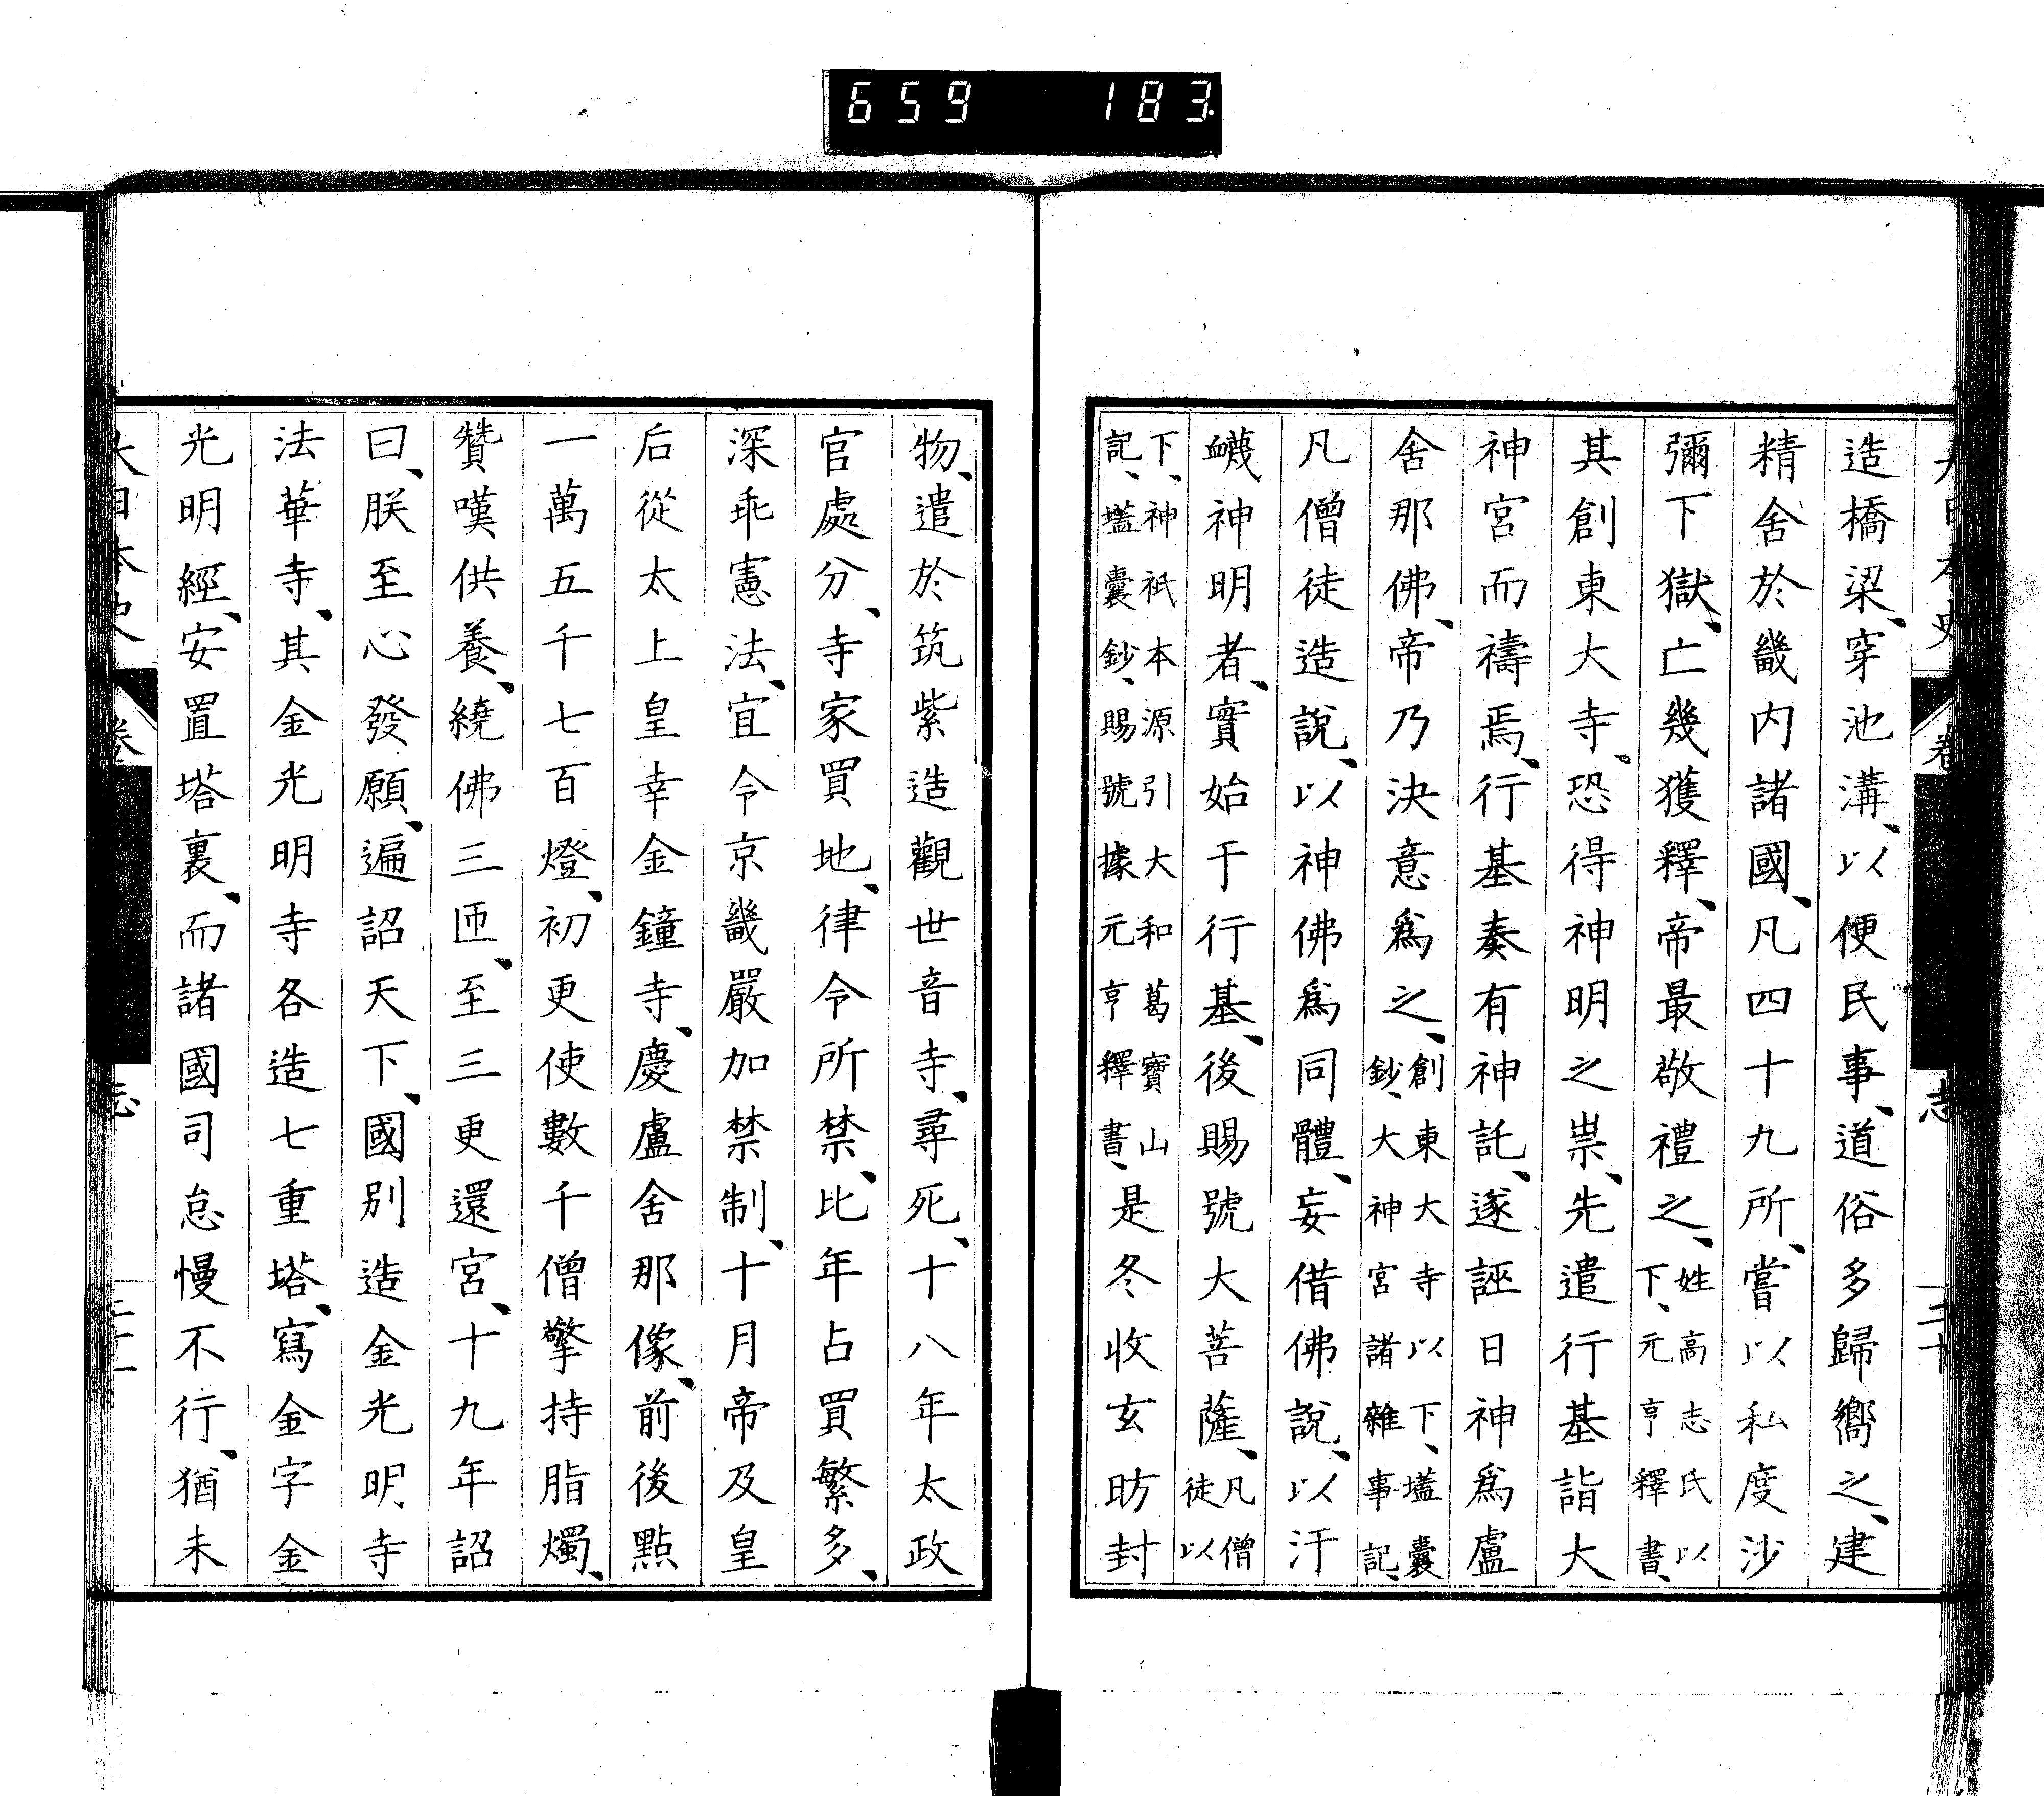 659 183
造橋梁、穿池溝、以便民事、道俗多歸嚮之、建
精舍於畿内諸國、凡四十九所、嘗以私度沙
彌下獄、亡幾獲釋、帝最敬禮之、姓高志氏以下、元亨釋書、
其創東大寺、恐得神明之祟、先遣行基詣大
神宮而禱焉、行基奏有神託、遂誣日神爲盧
舍那佛、帝乃決意爲之、創東大寺以下、壒囊鈔、大神宮諸雜事記、
凡僧徒造說、以神佛爲同體、妄借佛說、以汙
衊神明者、實始于行基、後賜號大菩薩、凡僧徒以
下、神祇本源引大和葛寶山記、壒囊鈔、賜號據元亨釋書、是冬收玄昉封
物、遣於筑紫造觀世音寺、尋死、十八年太政
官處分、寺家買地、律令所禁、比年占買繁多、
深乖憲法、宜令京畿嚴加禁制、十月帝及皇
后從太上皇幸金鐘寺、慶盧舍那像、前後點
一萬五千七百燈、初更使數千僧擎持脂燭、
贊嘆供養、繞佛三匝、至三更還宮、十九年詔
曰、朕至心發願、遍詔天下、國別造金光明寺
法華寺、其金光明寺各造七重塔、寫金字金
光明經、安置塔裏、而諸國司怠慢不行、猶未
大日本史 卷 志